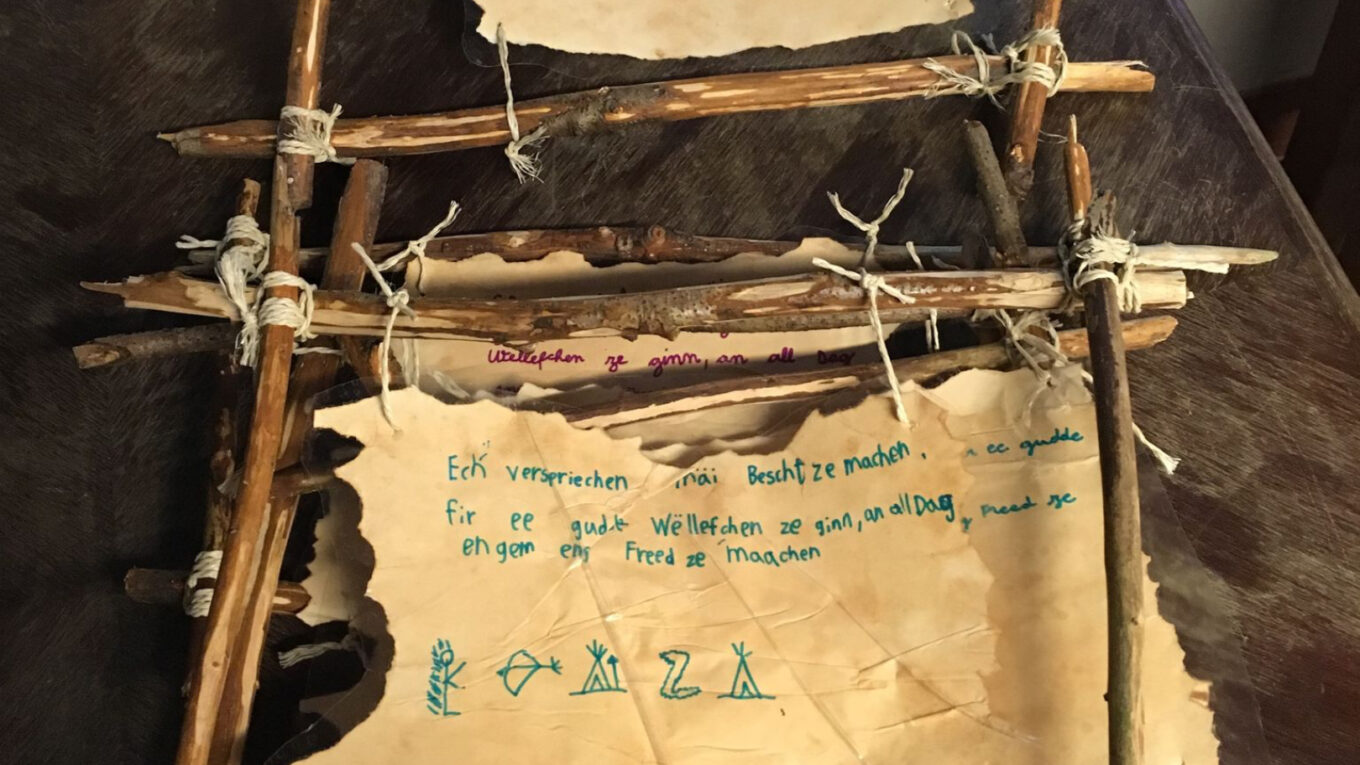 Wëllefchen ze ginn, an all Dag
Ech verspriechen mäi Bescht ze machen,
fir ee gudde Wëllefchen ze ginn, an all Dag
engem eng Freed ze maachen
ee gudde
Freed ze